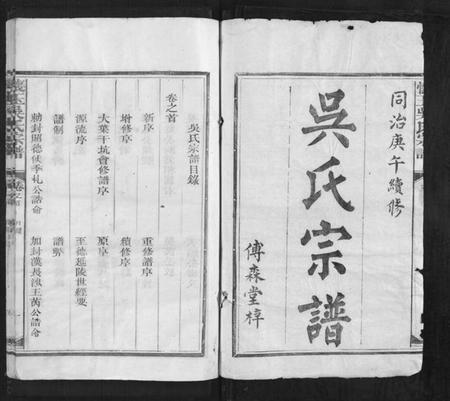 同治庚午續修
吳氏宗譜
傅森堂梓
吳氏宗譜目錄
卷之首
新序
重修譜序
增修序
續修序
大葉干坑會修譜序
原序
源流序
至德延陵世經要
譜制
譜弊
勅封昭德侯季札公誥命
加封漢長沙王芮公誥命